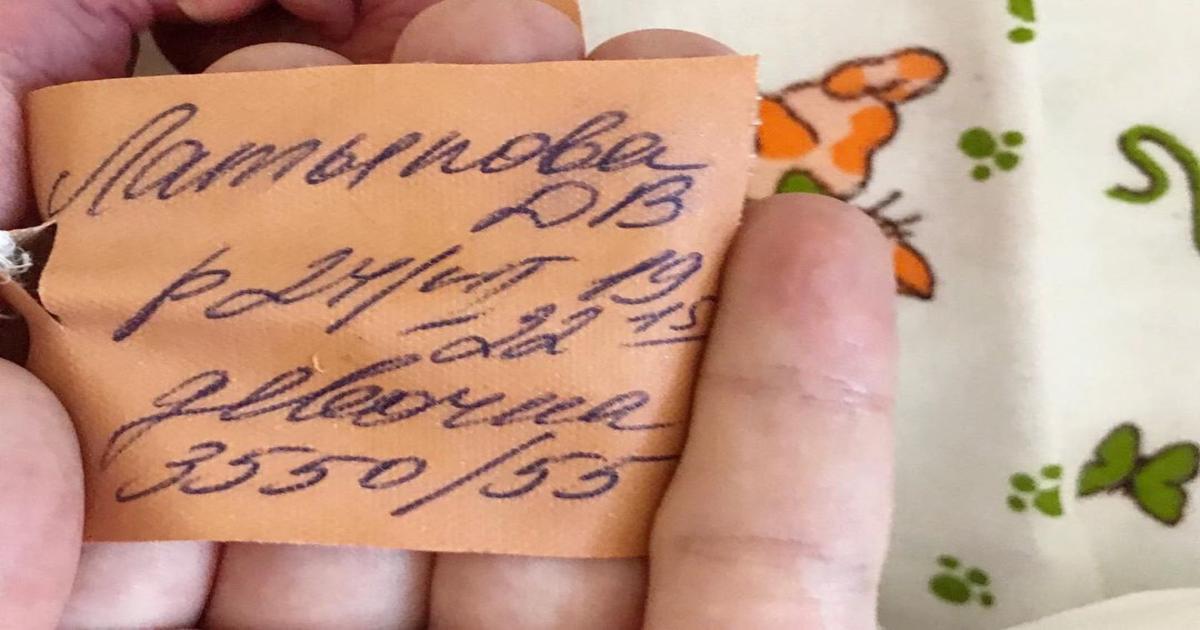 Латыпова
ДВ
р 24/VII 19
22 15
девочка
3550/55